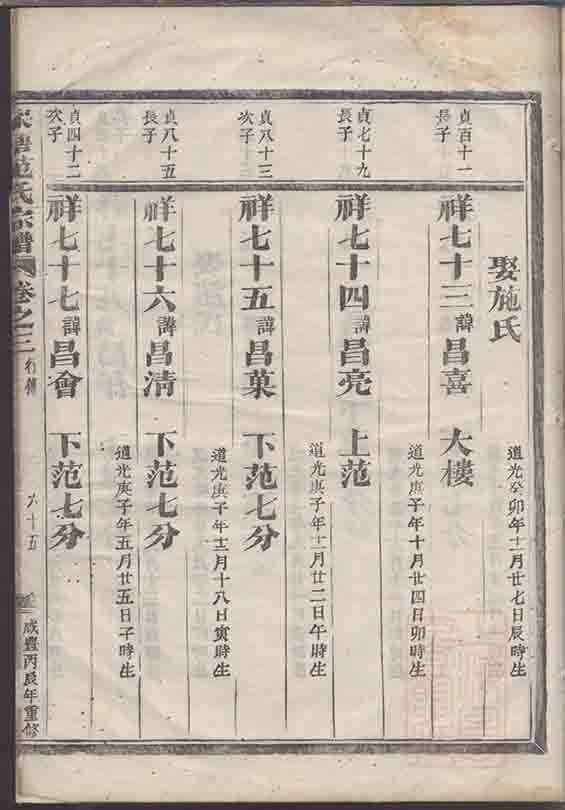 娶施氏
道光癸卯年十二月廿七日辰時生
貞百十一
長子
祥七十三 諱昌喜 大樓
道光庚子年十月廿四日卯時生
貞七十九
長子
祥七十四 諱昌亮 上范
道光庚子年十二月廿二日午時生
貞八十三
次子
祥七十五 諱昌菓 下范七分
道光庚子年十二月十八日寅時生
貞八十五
長子
祥七十六 諱昌淸 下范七分
道光庚子年五月廿五日子時生
貞四十二
次子
祥七十七 諱昌會 下范七分
范氏宗譜 卷之三 行傳 六十五 咸豐丙辰年重修